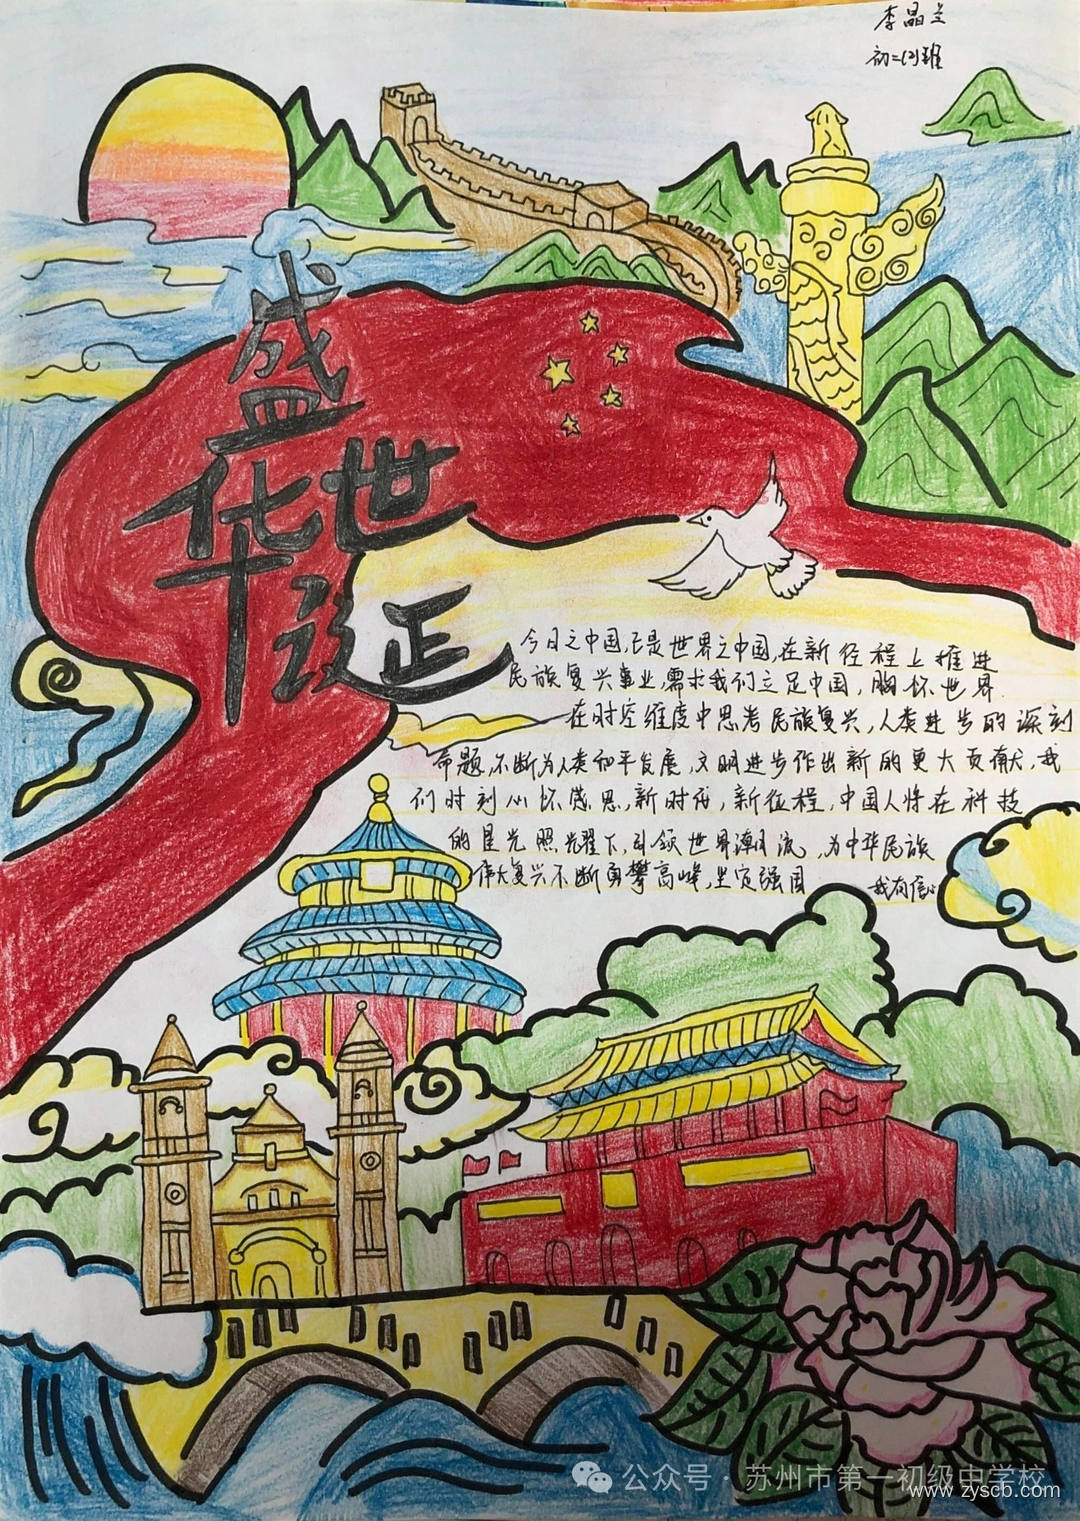 李晶兰
初二(3)班
盛世
华诞
今日之中国,已是世界之中国,在新征程上推进
民族复兴事业,需求我们立足中国,胸怀世界.
在时空维度中思考民族复兴,人类进步的深刻
命题,不断为人类和平发展,文明进步作出新的更大贡献,我
们时刻心怀感恩,新时代,新征程,中国人将在科技
的星光照耀下,引领世界潮流,为中华民族
伟大复兴不断勇攀高峰,坚定强国
我有信心
公众号·苏州市第一初级中学校
www.zyscb.com